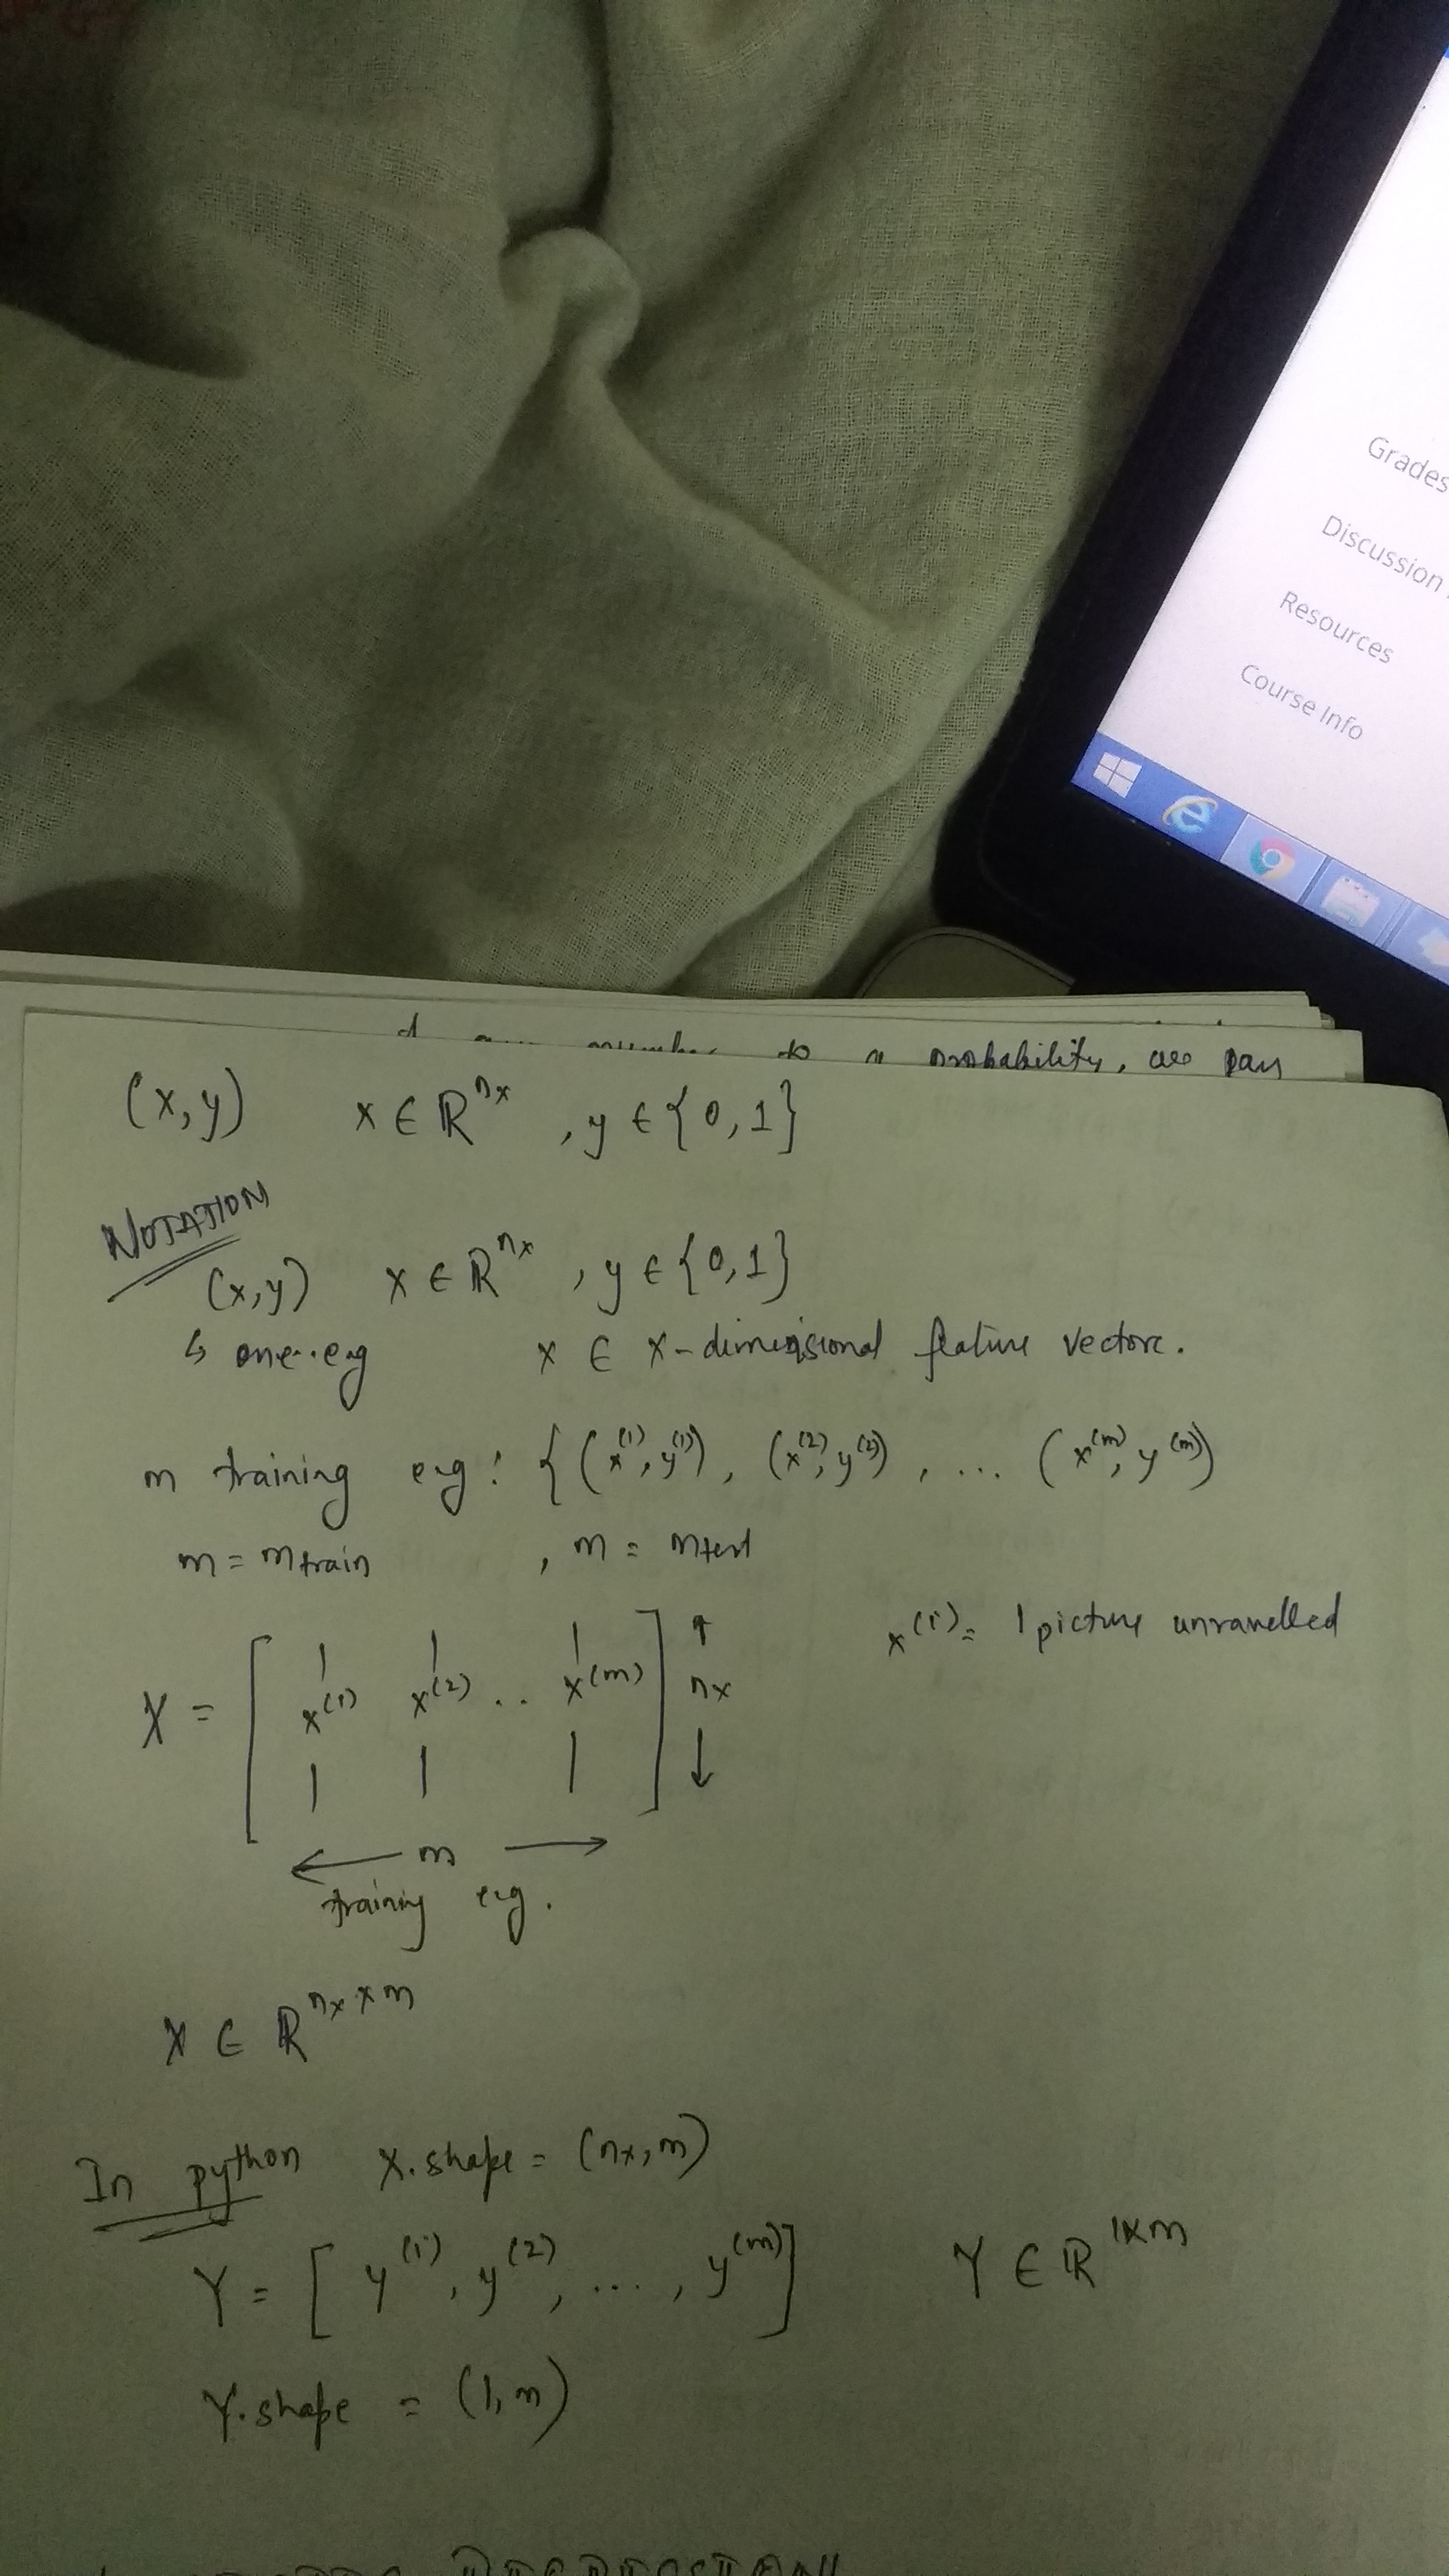 Grades
Discussion
Resources
Course Info
to a probability, we pass
(x,y) x ∈ ℝ^nx , y ∈ {0,1}
NOTATION
(x,y) x ∈ ℝ^nx , y ∈ {0,1}
↳ one eg x ∈ x-dimensional feature vector.
m training eg: { (x^(1), y^(1)), (x^(2), y^(2)), ... (x^(m), y^(m))
m = mtrain , m = mtest
x^(i) = 1 picture unravelled
X = [ x^(1) x^(2) .. x^(m) ] ↑ nx ↓
← m →
training eg.
X ∈ ℝ^nx×m
In python X.shape = (nx, m)
Y = [ y^(1), y^(2), ..., y^(m) ] Y ∈ ℝ^1×m
Y.shape = (1, m)